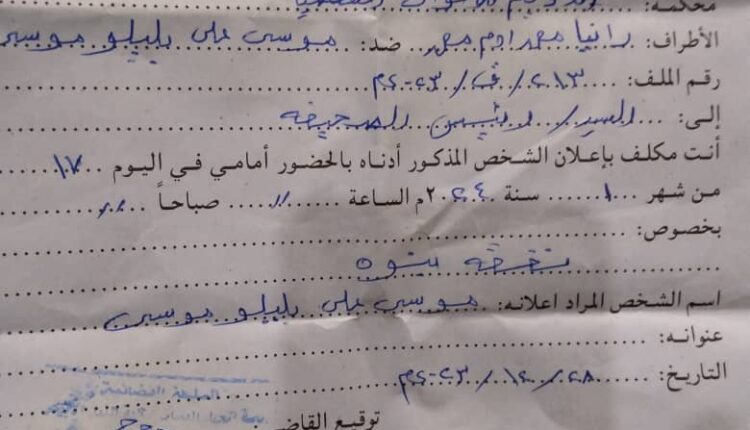 محكمة:
الأطراف: رانيا محمد ادم محمد ضد: موسى على بليلو موسى
رقم الملف: ٢٠١٣/ق/٢٠٢٣م
إلى: السيد/ رئيس الصحيفة
أنت مكلف بإعلان الشخص المذكور أدناه بالحضور أمامي في اليوم ١٧
من شهر ١ سنة ٢٠٢٤م الساعة صباحاً
بخصوص:
نفقة بنوة
اسم الشخص المراد اعلانه: موسى على بليلو موسى
عنوانه:
التاريخ: ٢٨/١٢/٢٠٢٣م
توقيع القاضي